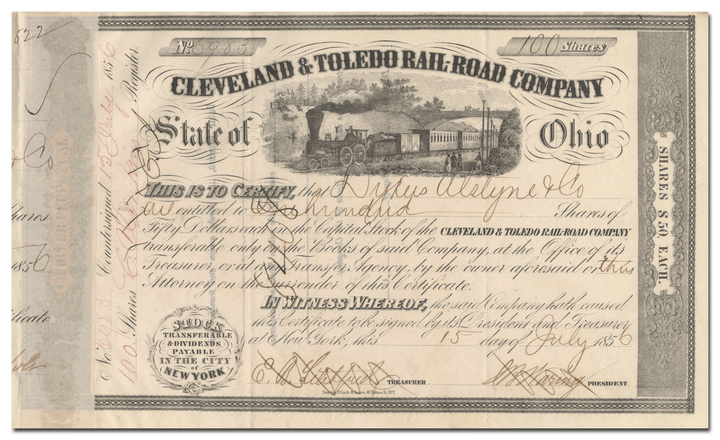 No. 5983
100 Shares
CLEVELAND & TOLEDO RAIL-ROAD COMPANY
State of Ohio
THIS IS TO CERTIFY, that Dykers Alstyne & Co
are entitled to One hundred Shares of
Fifty Dollars each of the Capital Stock of the CLEVELAND & TOLEDO RAIL-ROAD COMPANY
transferable only on the Books of said Company, at the Office of its
Treasurer, or at any Transfer Agency, by the owner aforesaid or this
Attorney on the surrender of this Certificate.
IN WITNESS WHEREOF, the said Company hath caused
this Certificate to be signed by its President and Treasurer
at New York, this 15 day of July 1856
TREASURER
PRESIDENT.
STOCK
TRANSFERABLE
& DIVIDENDS
PAYABLE
IN THE CITY
OF
NEW YORK
SHARES $50 EACH.
No. 5983
100 Shares
Countersigned 15 July 1856
Register.
522
& Co
Shares
1856